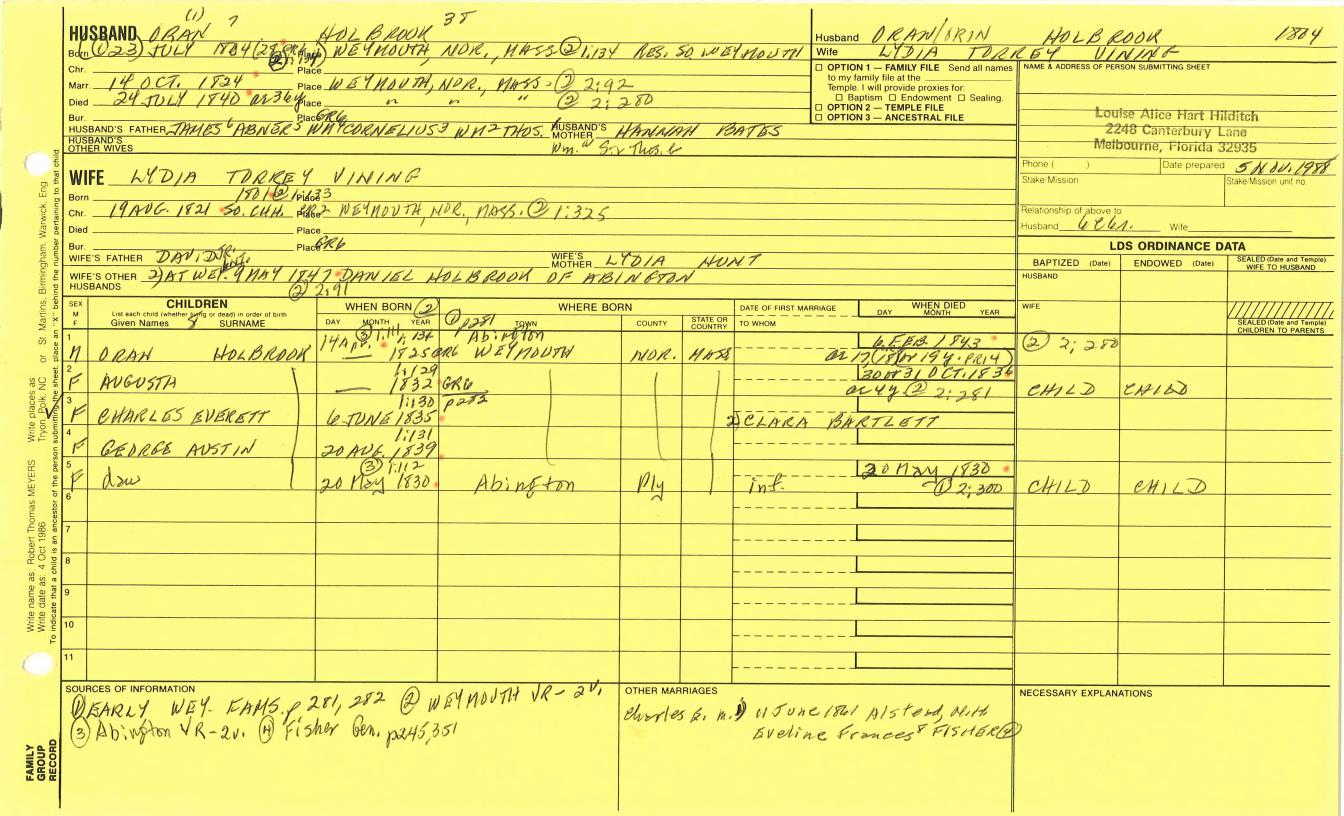 (1) 7 38
HUSBAND ORAN HOLBROOK
Born (1) 23 JULY 1804 Place WEYMOUTH, NOR., MASS (2) 1:134 RES. SO. WEYMOUTH
Chr. Place
Marr. 14 OCT. 1824 Place WEYMOUTH, NOR., MASS. (2) 2:92
Died 24 JULY 1840 or 36y Place " " " (2) 2:280
Bur. Place GR6
HUSBAND'S FATHER JAMES6 ABNER5 WM4 CORNELIUS3 WM2 THOS.1 HUSBAND'S MOTHER HANNAH BATES
HUSBAND'S OTHER WIVES
Husband ORAN/ORIN HOLBROOK 1804
Wife LYDIA TORREY VINING
☐ OPTION 1 — FAMILY FILE Send all names
to my family file at the
Temple. I will provide proxies for:
☐ Baptism ☐ Endowment ☐ Sealing.
☐ OPTION 2 — TEMPLE FILE
☐ OPTION 3 — ANCESTRAL FILE
NAME & ADDRESS OF PERSON SUBMITTING SHEET
Louise Alice Hart Hilditch
2248 Canterbury Lane
Melbourne, Florida 32935
Phone ( ) Date prepared 5 NOV. 1988
Stake/Mission Stake/Mission unit no.
Relationship of above to
Husband 6C6r. Wife
WIFE LYDIA TORREY VINING
Born 1801 (2) 1:333 Place
Chr. 19 AUG. 1821 SO. CHH. Place WEYMOUTH, NOR., MASS. (2) 1:325
Died Place
Bur. Place GR6
WIFE'S FATHER DAVID JR. WIFE'S MOTHER LYDIA HUNT
WIFE'S OTHER HUSBANDS 2) AT WEY. 9 MAY 1847 DANIEL HOLBROOK OF ABINGTON
(2) 2:91
LDS ORDINANCE DATA
BAPTIZED (Date) ENDOWED (Date) SEALED (Date and Temple) WIFE TO HUSBAND
HUSBAND
WIFE
SEALED (Date and Temple) CHILDREN TO PARENTS
SEX M F
CHILDREN
List each child (whether living or dead) in order of birth
Given Names 8 SURNAME
WHEN BORN (2)
DAY MONTH YEAR
WHERE BORN
(1) p281 TOWN COUNTY STATE OR COUNTRY
DATE OF FIRST MARRIAGE
TO WHOM
WHEN DIED
DAY MONTH YEAR
1 14 Apr. (3) 1:111 Abington 6 FEB 1843 (2) 2:280
M ORAN HOLBROOK 1825 GR6 WEYMOUTH NOR. MASS or 17 (18 or 19y. PR14)
2 1:129 30 or 31 OCT. 1836
F AUGUSTA 1832 GR6 or 4y (2) 2:281 CHILD CHILD
3 1:130 p282
F CHARLES EVERETT 6 JUNE 1835 2) CLARA BARTLETT
4 1:131
F GEORGE AUSTIN 20 AUG. 1839
5 (3) 1:112 20 May 1830
F daw 20 May 1830 Abington Ply inf. (1) 2:300 CHILD CHILD
6
7
8
9
10
11
SOURCES OF INFORMATION
(1) EARLY WEY. FAMS. p 281, 282 (2) WEYMOUTH VR - 2v.
(3) Abington VR - 2v. (4) Fisher Gen. p245, 351
OTHER MARRIAGES
Charles E. m. 1) 11 June 1861 Alstead, N.H.
Eveline Frances8 FISHER (4)
NECESSARY EXPLANATIONS
Write name as: Robert Thomas MEYERS Write places as Tryon, Polk, NC or St Martins, Birmingham, Warwick, Eng
Write date as: 4 Oct 1986
To indicate that a child is an ancestor of the person submitting the sheet, place an "X" behind the number pertaining to that child
FAMILY
GROUP
RECORD